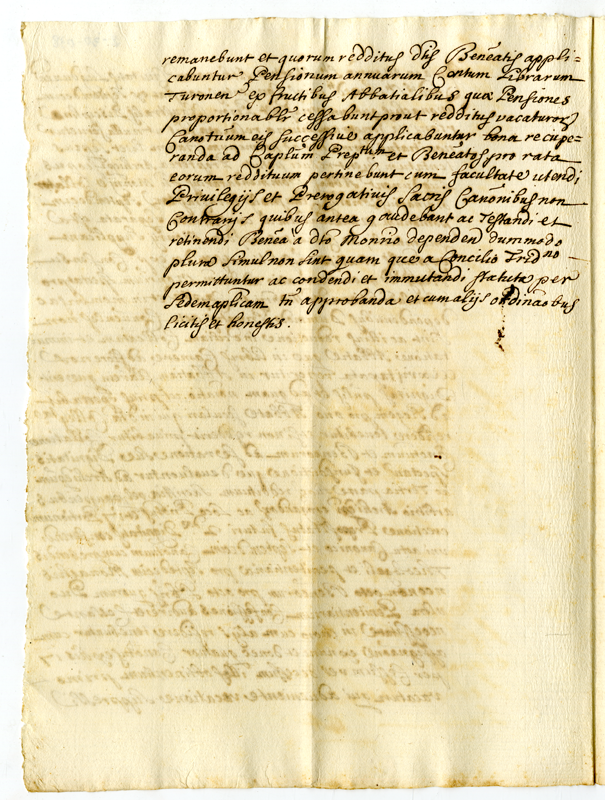 remanebunt et quorum redditus dtis Beneatis appli=
cabuntur Pensionum annuarum Centum Librarum
Turonen ex fructibus Abbatialibus quæ Pensiones
proportionablr cessabunt prout redditus vacaturor
Canotuum eis successive applicabuntur bona recupe=
randa ad Caplum Preptum et Beneatos pro rata
eorum reddituum pertinebunt cum facultate utendi
Privilegijs et Prerogativis Sacris Canonibus non
Contrarijs quibus antea gaudebant ac Testandi et
retinendi Benea a dto Monrio dependen dummodo
plura simul non sint quam que a Concilio Tridno
permittuntur ac condendi et immutandi statuta per
sedem aplicam tn approbanda et cum alijs ordinaobus
licitis et honestis.